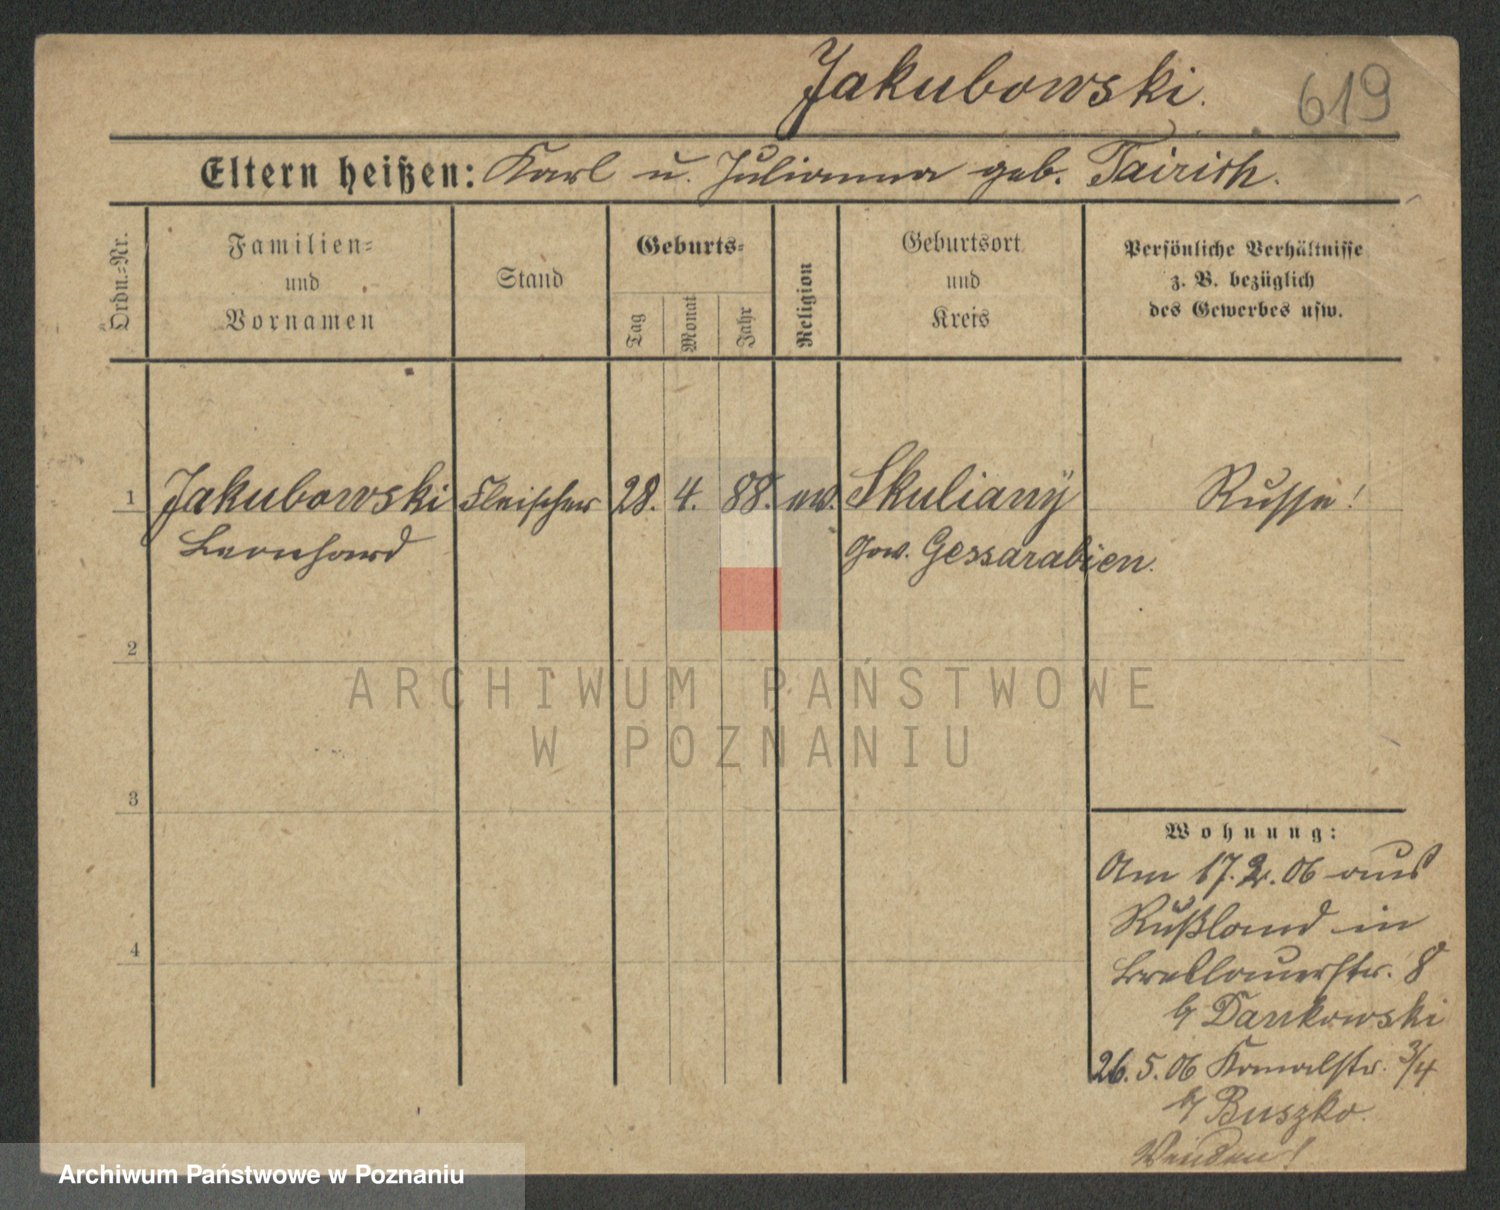 Jakubowski. 619
Eltern heißen: Karl u. Julianna geb. Tairich.
Ordn.-Nr.
Familien-
und
Vornamen
Stand
Geburts-
Tag
Monat
Jahr
Religion
Geburtsort
und
Kreis
Persönliche Verhältnisse
z. B. bezüglich
des Gewerbes usw.
1 Jakubowski Fleischer 28. 4. 88. ev. Skuliany Russe!
Leonhard Gouv. Gessarabien.
2
3
4
Wohnung:
Am 17.2.06 aus
Rußland in
Breslauerstr. 8
b/ Dankowski
26.5.06 Kanalstr. 3/4
b/ Buszko.
Wenden!
ARCHIWUM PAŃSTWOWE
W POZNANIU
Archiwum Państwowe w Poznaniu